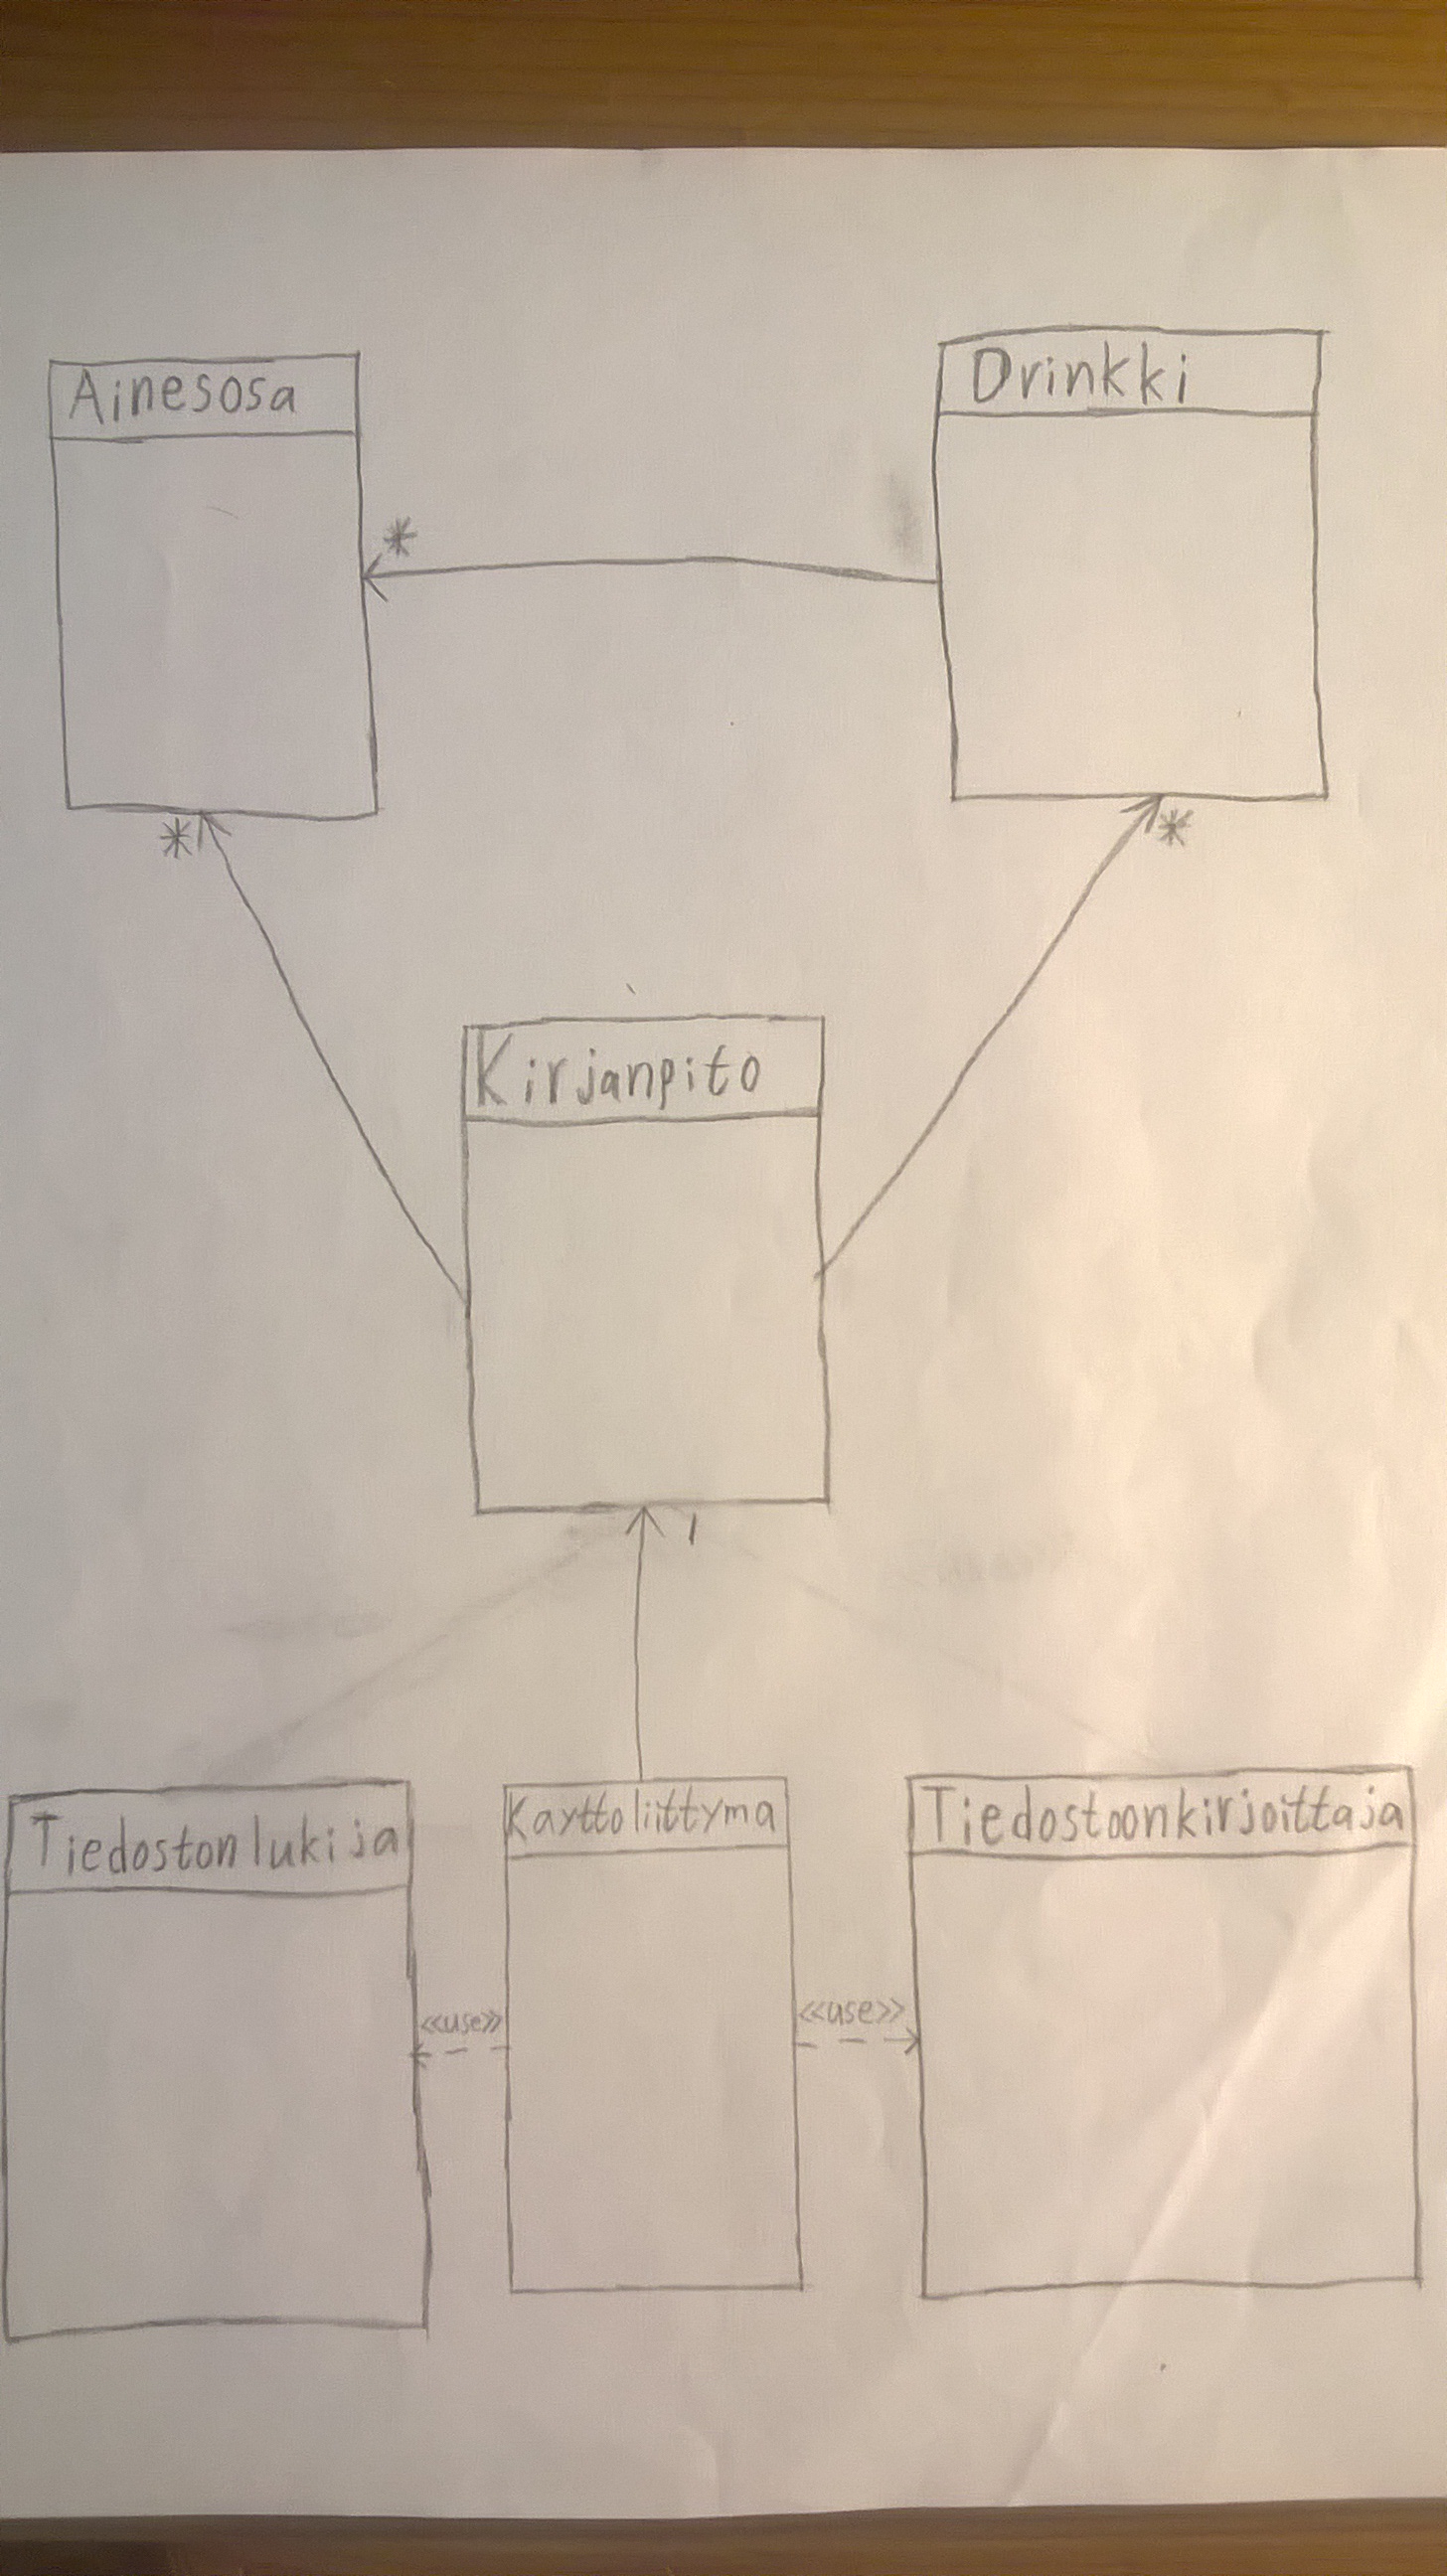 Ainesosa
Drinkki
*
*
*
Kirjanpito
1
Tiedostonlukija
Kayttoliittyma
Tiedostoonkirjoittaja
<<use>>
<<use>>